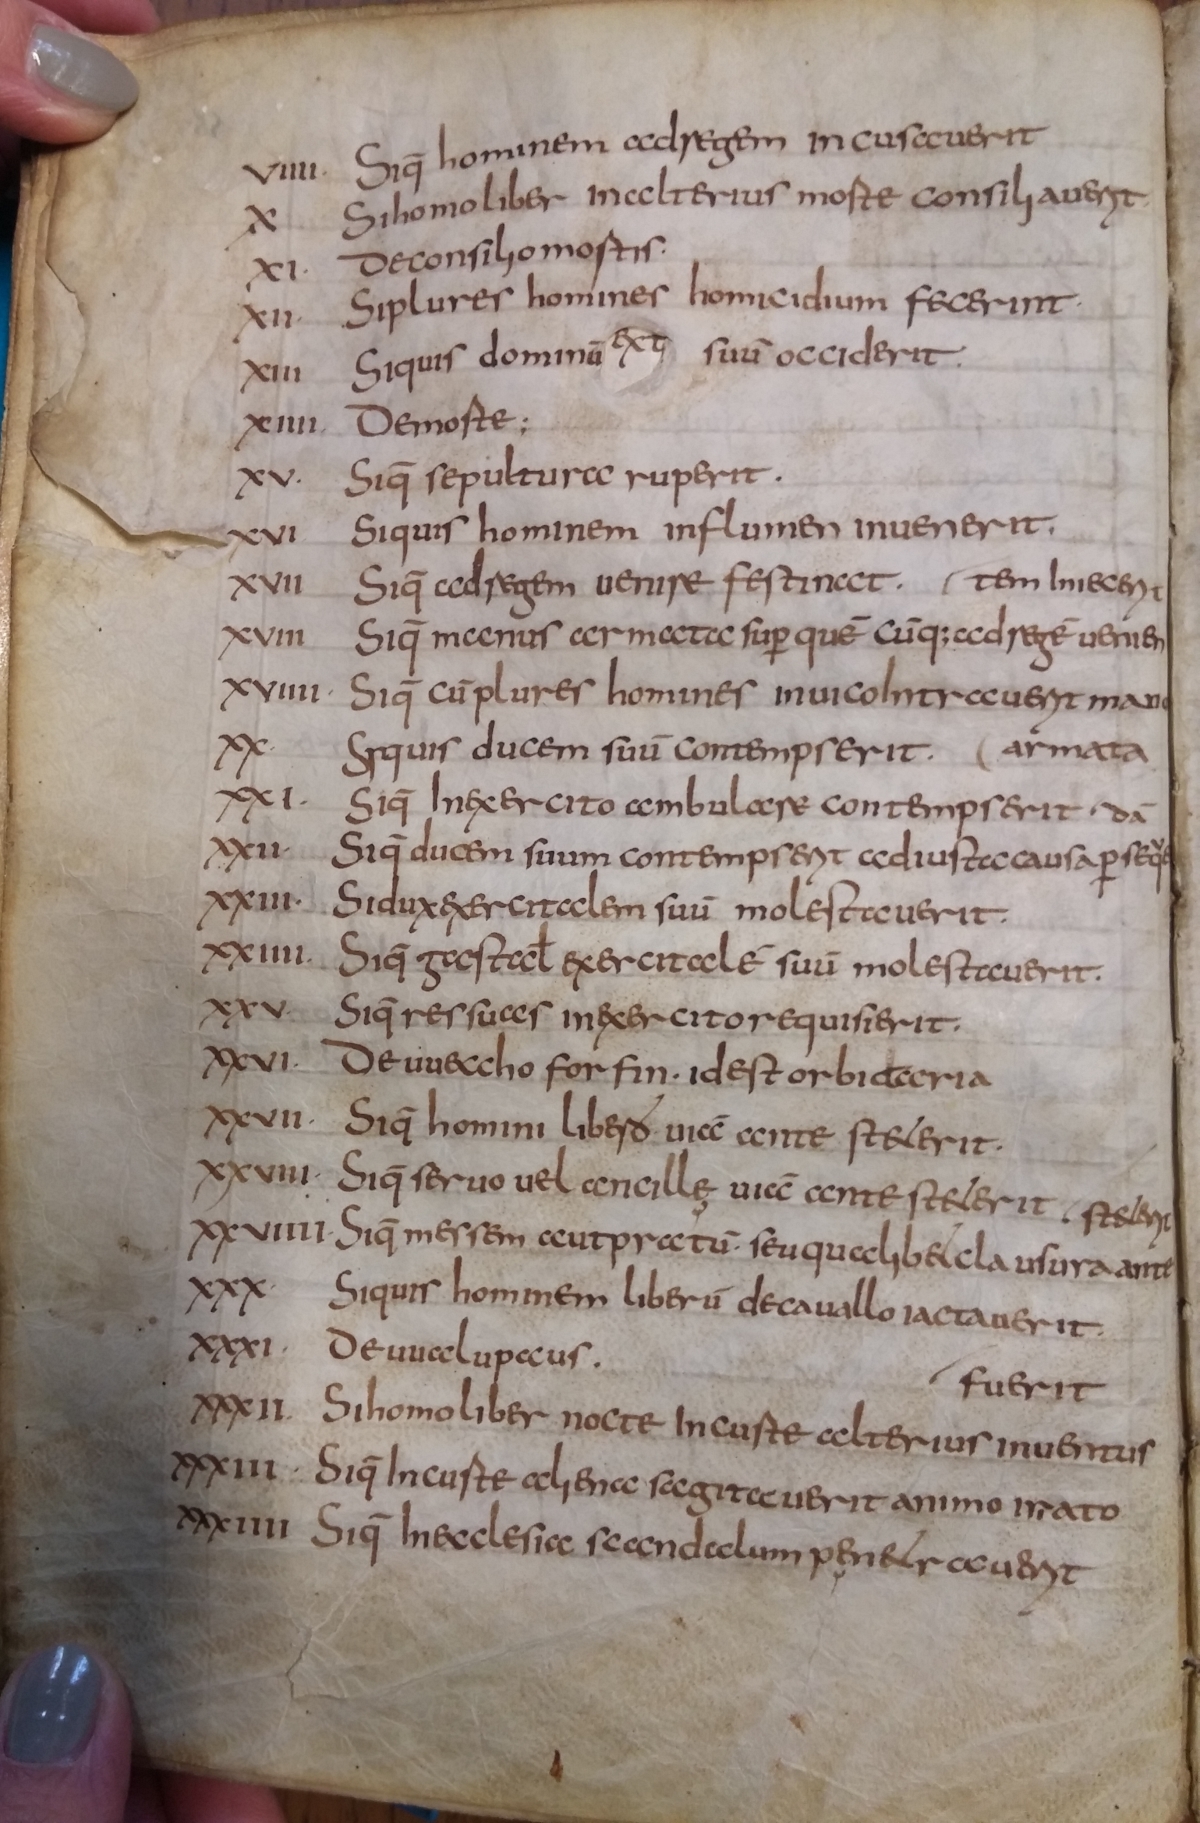 VIIII. Siq̄ hominem adregem incusauerit
X Sihomoliber inalterius morte consiliauerit
XI. Deconsiliomortis.
XII. Siplures homines homicidium fecerint.
XIII Siquis dominū ext suū occiderit.
XIIII. Demorte;
XV. Siq̄ sepultura ruperit.
XVI Siquis hominem influmen inuenerit.
XVII Siq̄ adregem uenire festinat. (tem Iniecerit
XVIII Siq̄ manus armata sup̲ quē cūq; adregē uenien
XVIIII. Siq̄ cūplures homines inuicoIntrauerit manu
XX. Siquis ducem suū contempserit. (armata
XXI. Siq̄ Inexercito ambulare contempserit. dā
XXII. Siq̄ ducem suum contempserit adiusta causa p̲seq̄
XXIII. Sidux exercitalem suū molestauerit.
XXIIII. Siq̄ gastałd exercitalē suū molestauerit.
XXV. Siq̄ res suas inexercito requisierit.
XXVI. Deuuecho forfin. idest orbitaria
XXVII. Siq̄ homini libero uiā ante steterit.
XXVIII. Siq̄ seruo uel ancillę uiā ante steterit (steterit
XXVIIII. Siq̄ messem autpratū. seuqualibet clausura ante
XXX. Siquis hominem liberū decauallo iactauerit.
XXXI. Deuualupaus.
(fuerit
XXXII. Sihomoliber nocte Incurte alterius inuentus
XXXIII. Siq̄ Incurte aliena sagitauerit animo irato
XXXIIII Siq̄ Inecclesia scandalum penetrauerit